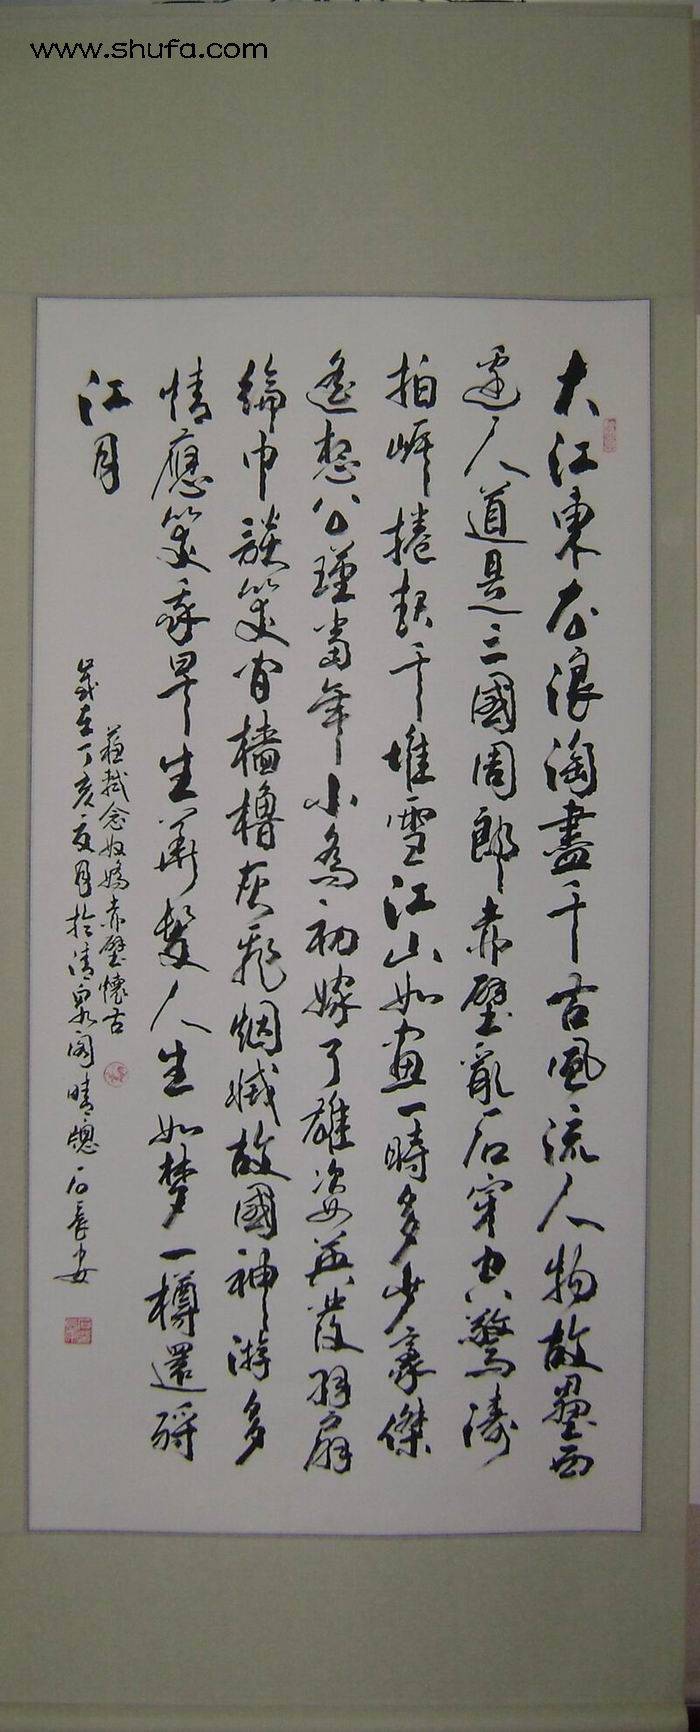 www.shufa.com
大江東去浪淘盡千古風流人物故壘西
邊人道是三國周郎赤壁亂石穿空驚濤
拍岸捲起千堆雪江山如畫一時多少豪傑
遙想公瑾當年小喬初嫁了雄姿英發羽扇
綸巾談笑間檣櫓灰飛烟滅故國神游多
情應笑我早生華髮人生如梦一樽還酹
江月
蘇軾念奴嬌赤壁懷古
歲在丁亥夏月於清泉閣晴窗石長安